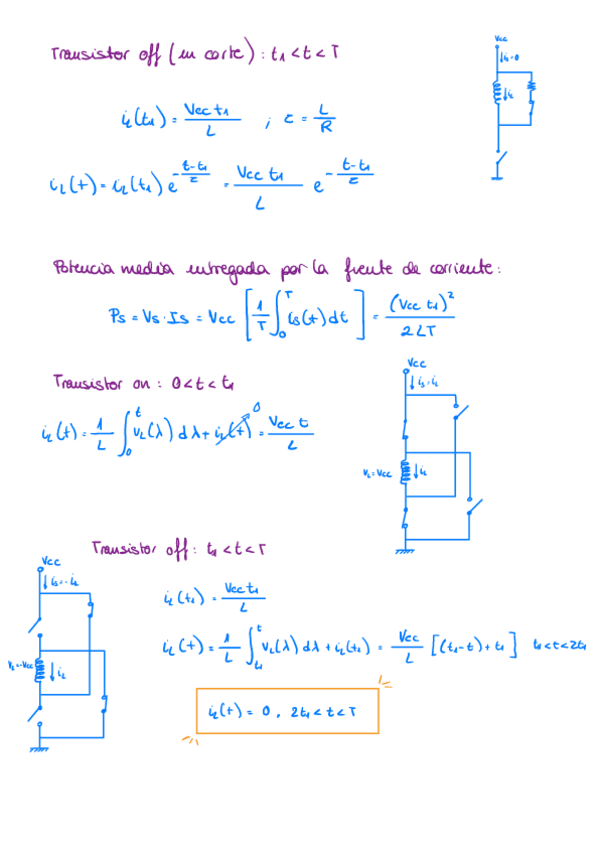 Transistor off (en corte): t₁ < t < T
Vcc
↓is=0
↓iL
iL(t₁) = Vcc t₁ / L ; τ = L / R
iL(t) = iL(t₁) e^(-(t-t₁)/τ) = Vcc t₁ / L e^(-(t-t₁)/τ)
Potencia media entregada por la fuente de corriente:
Ps = Vs · Is = Vcc [ 1/T ∫₀ᵀ is(t) dt ] = (Vcc t₁)² / 2LT
Transistor on: 0 < t < t₁
Vcc
↓ is=iL
iL(t) = 1/L ∫₀ᵗ vL(λ) dλ + iL(t) 0 = Vcc t / L
VL=Vcc
↓iL
Transistor off: t₁ < t < T
Vcc
↓ is=-iL
VL=-Vcc
↓iL
iL(t₁) = Vcc t₁ / L
iL(t) = 1/L ∫t₁ᵗ vL(λ) dλ + iL(t₁) = Vcc / L [(t₁-t) + t₁] t₁ < t < 2t₁
iL(t) = 0, 2t₁ < t < T